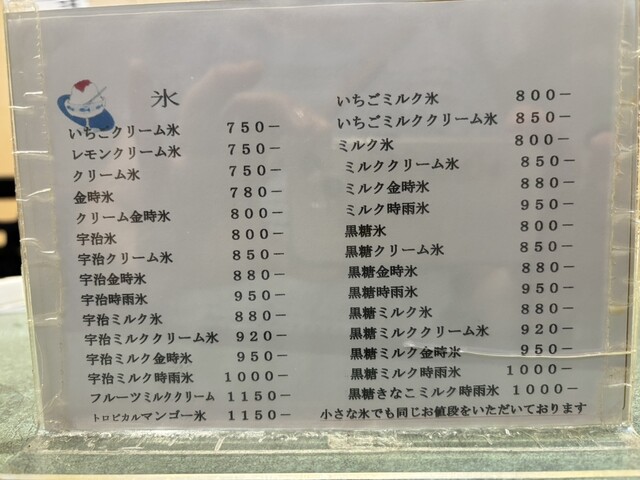 氷
いちごクリーム氷 750－
レモンクリーム氷 750－
クリーム氷 750－
金時氷 780－
クリーム金時氷 800－
宇治氷 800－
宇治クリーム氷 850－
宇治金時氷 880－
宇治時雨氷 950－
宇治ミルク氷 880－
宇治ミルククリーム氷 920－
宇治ミルク金時氷 950－
宇治ミルク時雨氷 1000－
フルーツミルククリーム 1150－
トロピカルマンゴー氷 1150－
いちごミルク氷 800－
いちごミルククリーム氷 850－
ミルク氷 800－
ミルククリーム氷 850－
ミルク金時氷 880－
ミルク時雨氷 950－
黒糖氷 800－
黒糖クリーム氷 850－
黒糖金時氷 880－
黒糖時雨氷 950－
黒糖ミルク氷 880－
黒糖ミルククリーム氷 920－
黒糖ミルク金時氷 950－
黒糖ミルク時雨氷 1000－
黒糖きなこミルク時雨氷 1000－
小さな氷でも同じお値段をいただいております